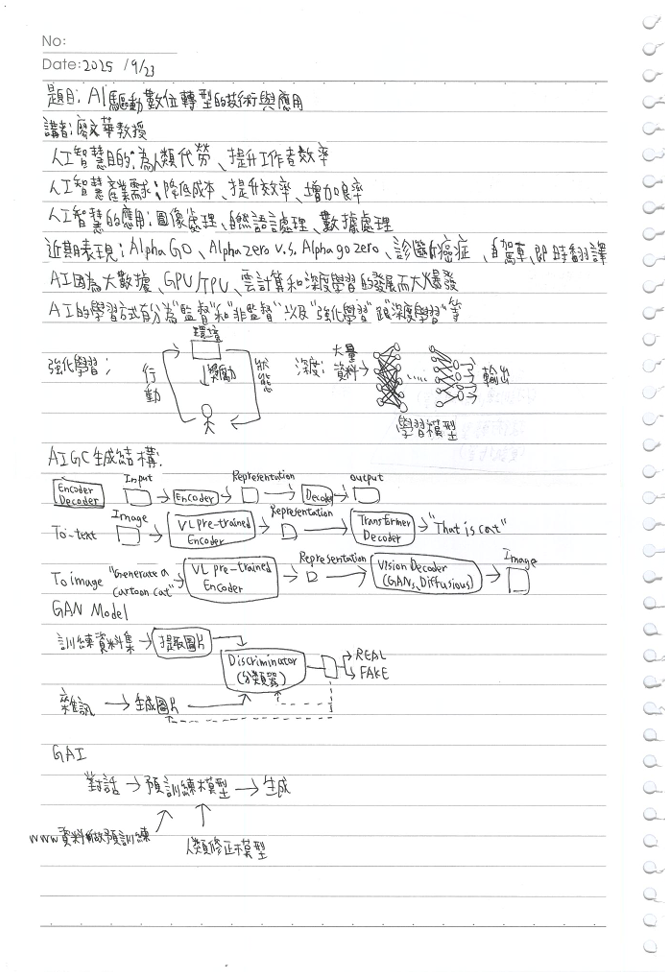 No:
Date: 2025 /9/23
題目: AI驅動數位轉型的技術與應用
講者: 廖文華教授
人工智慧目的: 為人類代勞、提升工作者效率
人工智慧產業需求: 降低成本、提升效率、增加良率
人工智慧的應用: 圖像處理、自然語言處理、數據處理
近期表現: Alpha GO、Alpha zero v.s. Alpha go zero、診斷癌症、自駕車、即時翻譯
AI因為大數據、GPU/TPU、雲計算和深度學習的發展而大爆發
AI的學習方式有分為"監督"和"非監督"以及"強化學習"跟"深度學習"等
強化學習: 行動 環境 獎勵 狀態
深度: 大量資料→ ..... 輸出
學習模型
AIGC生成結構:
Encoder Decoder Input → Encoder → Representation → Decoder → output
To-text Image → VL pre-trained Encoder → Representation → Transformer Decoder → "That is cat"
To image "Generate a cartoon cat" → VL pre-trained Encoder → Representation → Vision Decoder (GANs, Diffusions) → Image
GAN Model
訓練資料集 → 提取圖片
Discriminator (分類器) → REAL
FAKE
雜訊 → 生成圖片
GAI
對話 → 預訓練模型 → 生成
www資料做預訓練
人類修正模型